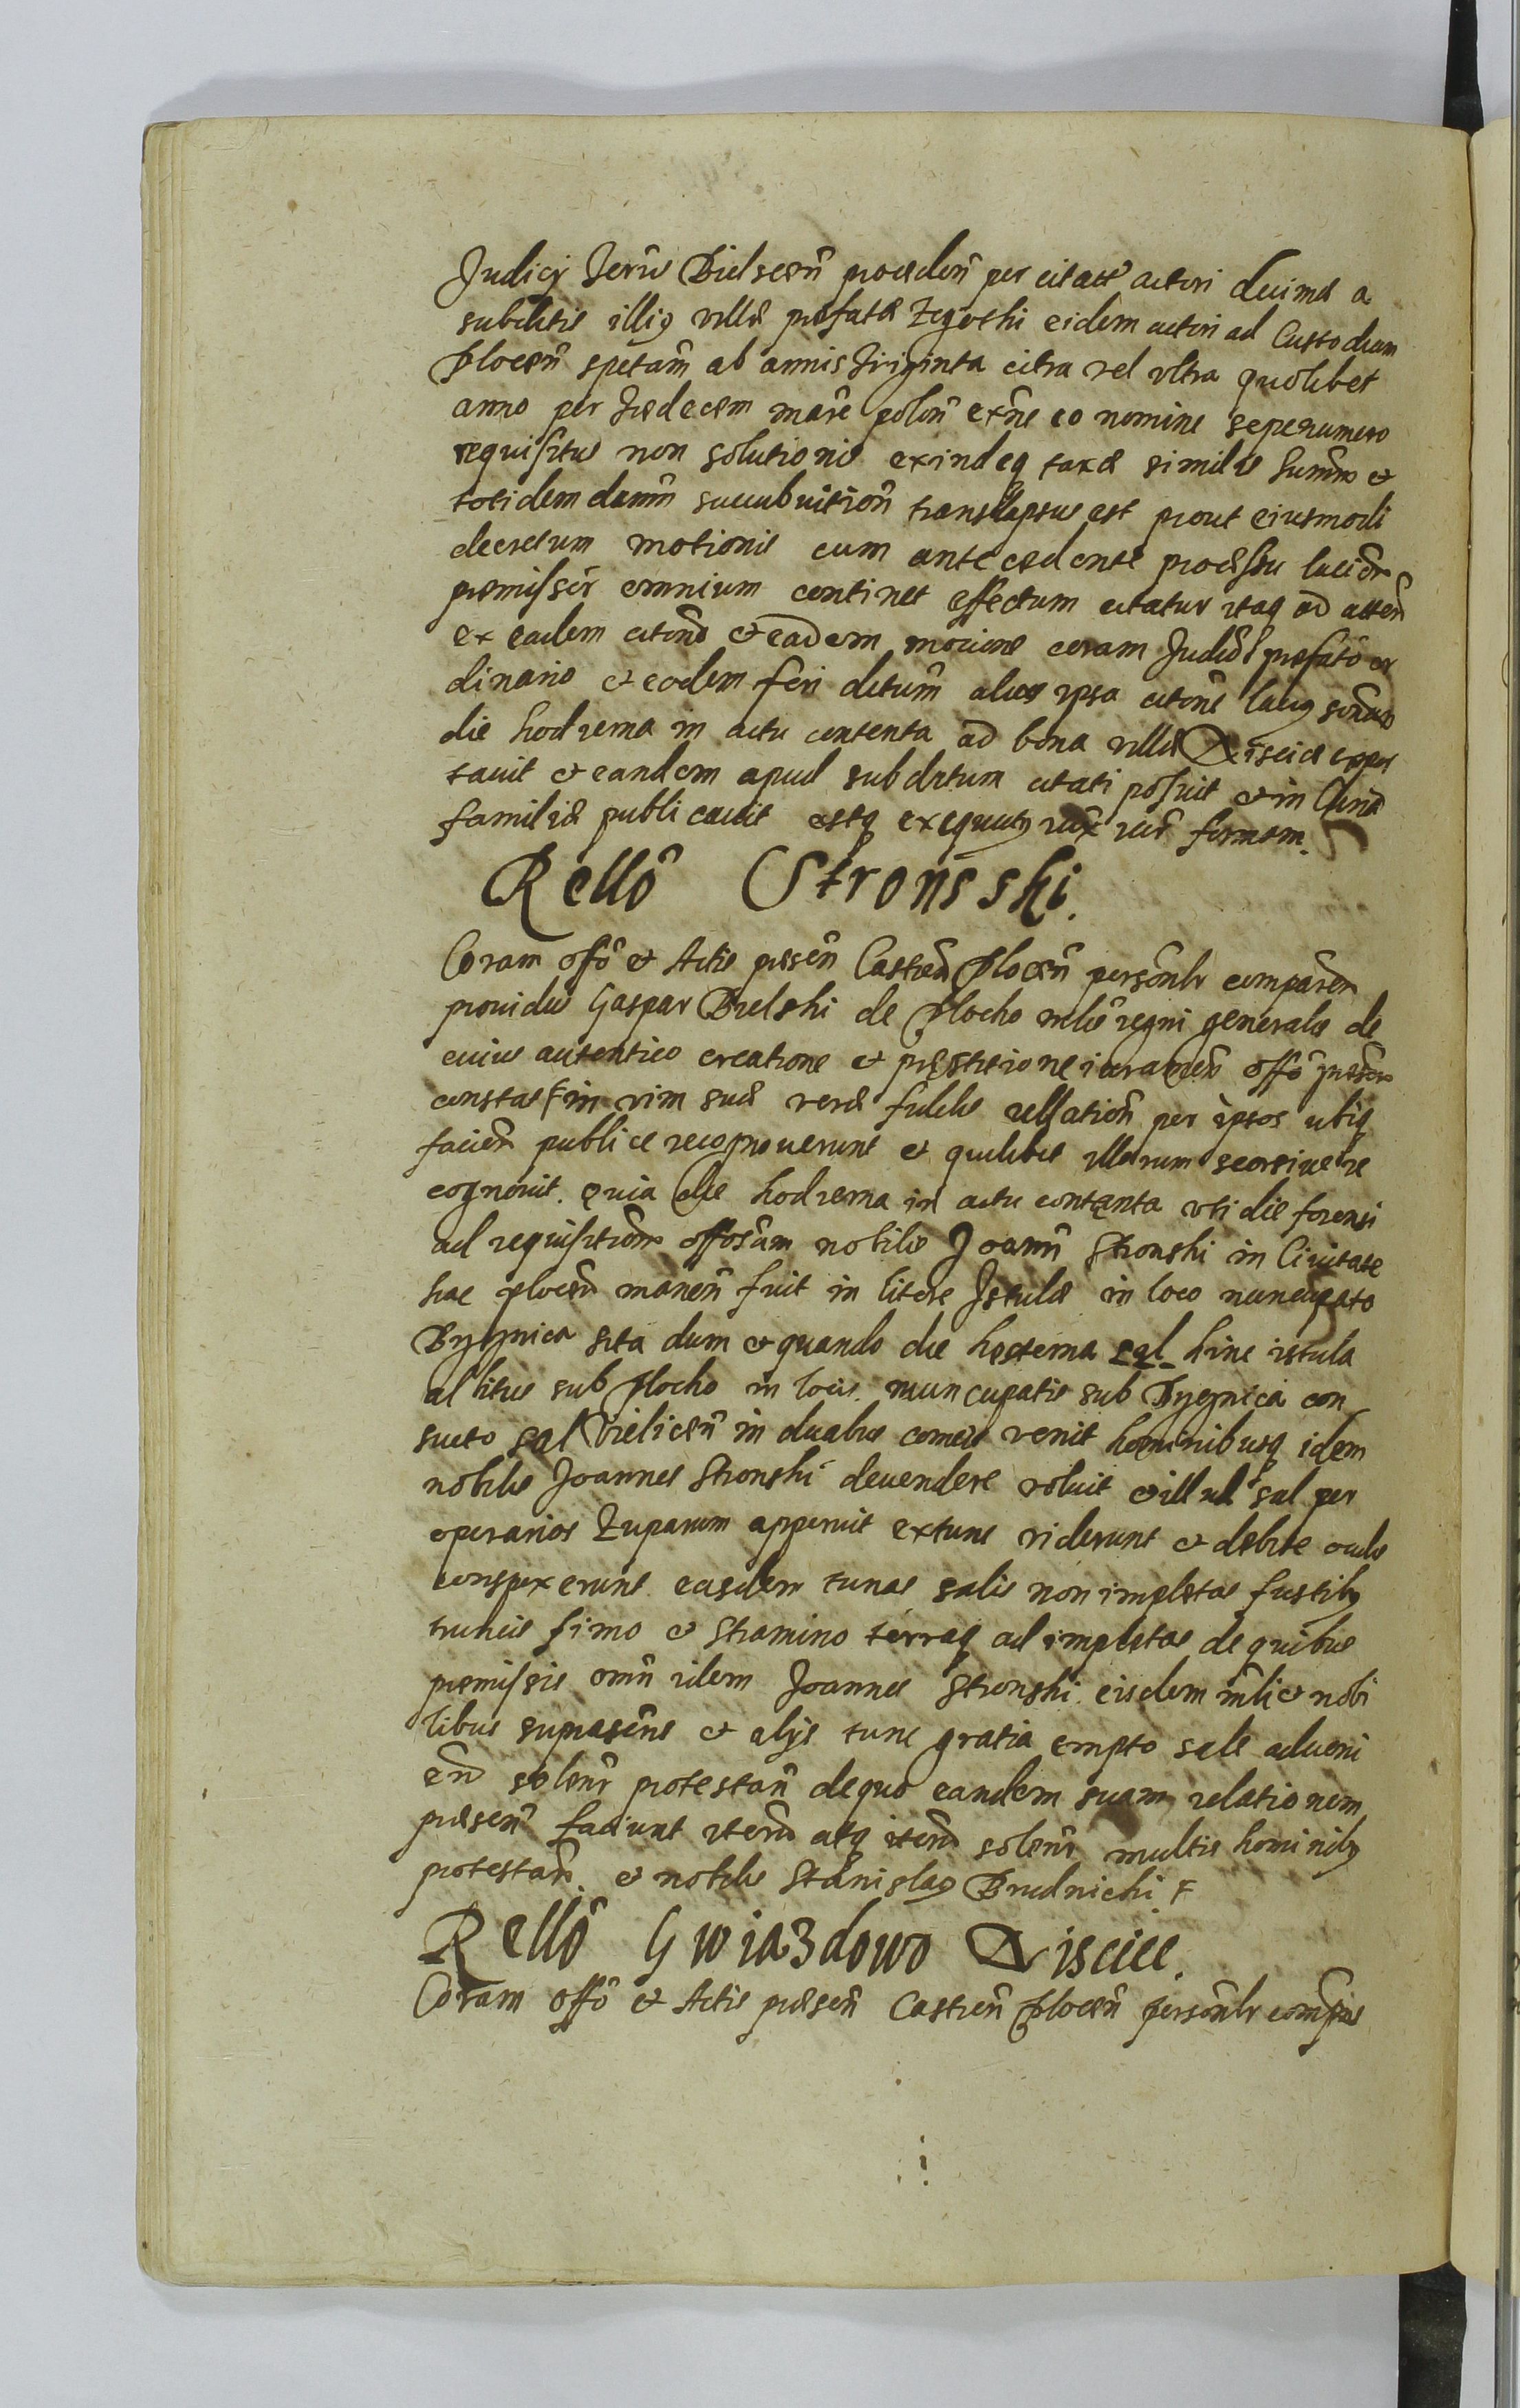 Judicij Terris Bielscen̄ proceden̄ per citatū actori decimæ a
subditis illiꝯ villæ præfatæ Zegothi eidem actori ad Custodiam
Plocen̄ spetān̄ ab annis Triginta citra vel vltra quolibet
anno per Tredecem marc̄ polon̄ extn̄c eo nomine sepenumero
requisitus non solutionis exindeq taxæ similis summæ et
totidem damn̄ succubuition̄ translapsus est prout eiusmodi
decretum motionis cum antecedente processu laciōr
præmissor̄ omnium continet effectum citatur itaq ad atten̄
ex eadem citōne et eadem mocione coram Judicō præfatō or
dinario et eodem feri dictum alias ipsa citōne latiꝯ sonan
die hodierna in actu contenta ad bona villæ Discice appor
tauit et eandem apud subditum citati posuit et in Curia
familiæ publicauit estq exequutꝯ iux iur̄ formam.
Rellō Stronsski.
Coram offō et Actis præsen̄ Castren̄ Plocen̄ personlr comparen̄
prouidus Gaspar Bielski de Plocko mlis regni generalis de
cuius autentico creatione et præstitione iuramen̄ offō præsen̄
constat F in vim suæ veræ fidelis rellation̄ per ipsos ubiq
facien̄ publice recognouerunt et quilibet illorum seorsiue re
cognouit. quia die hodierna in actu contenta vti die forensi
ad requisition̄ offosam nobilis Joann̄ Stronski in Ciuitate
hac plocen̄ manen̄ fuit in litore Istulæ in loco nuncupato
Rybnica sita dum et quando die hesterna sal hinc istula
al litus sub Plocko in locis nuncupatis sub Rybnica con
sueto sal Vielicen̄ in duabus comeis venit hominibusq idem
nobilis Joannes Stronski deuendere voluit et illud sal per
operarios Zuparum apperuit extunc viderunt et debite oculis
conspexerunt easdem tunas salis non impletas fustibꝯ
truncis fimo et Stramino terraq ad impletas de quibus
præmissis omn̄ idem Joannes Stronski eisdem mlī et nobi
libus suprascn̄s et alijs tunc gratia empto sale adueni
en̄ solenr protestan̄ de quo eandem suam relationem
præsen̄ faciunt iterū atq iterū solenr multis hominibꝯ
protestan̄. et nobilis Stanislaꝯ Brudnicki F
Rellō Gwiazdowo Discice.
Coram offō et Actis præsen̄ Castren̄ Plocen̄ personlr compar̄